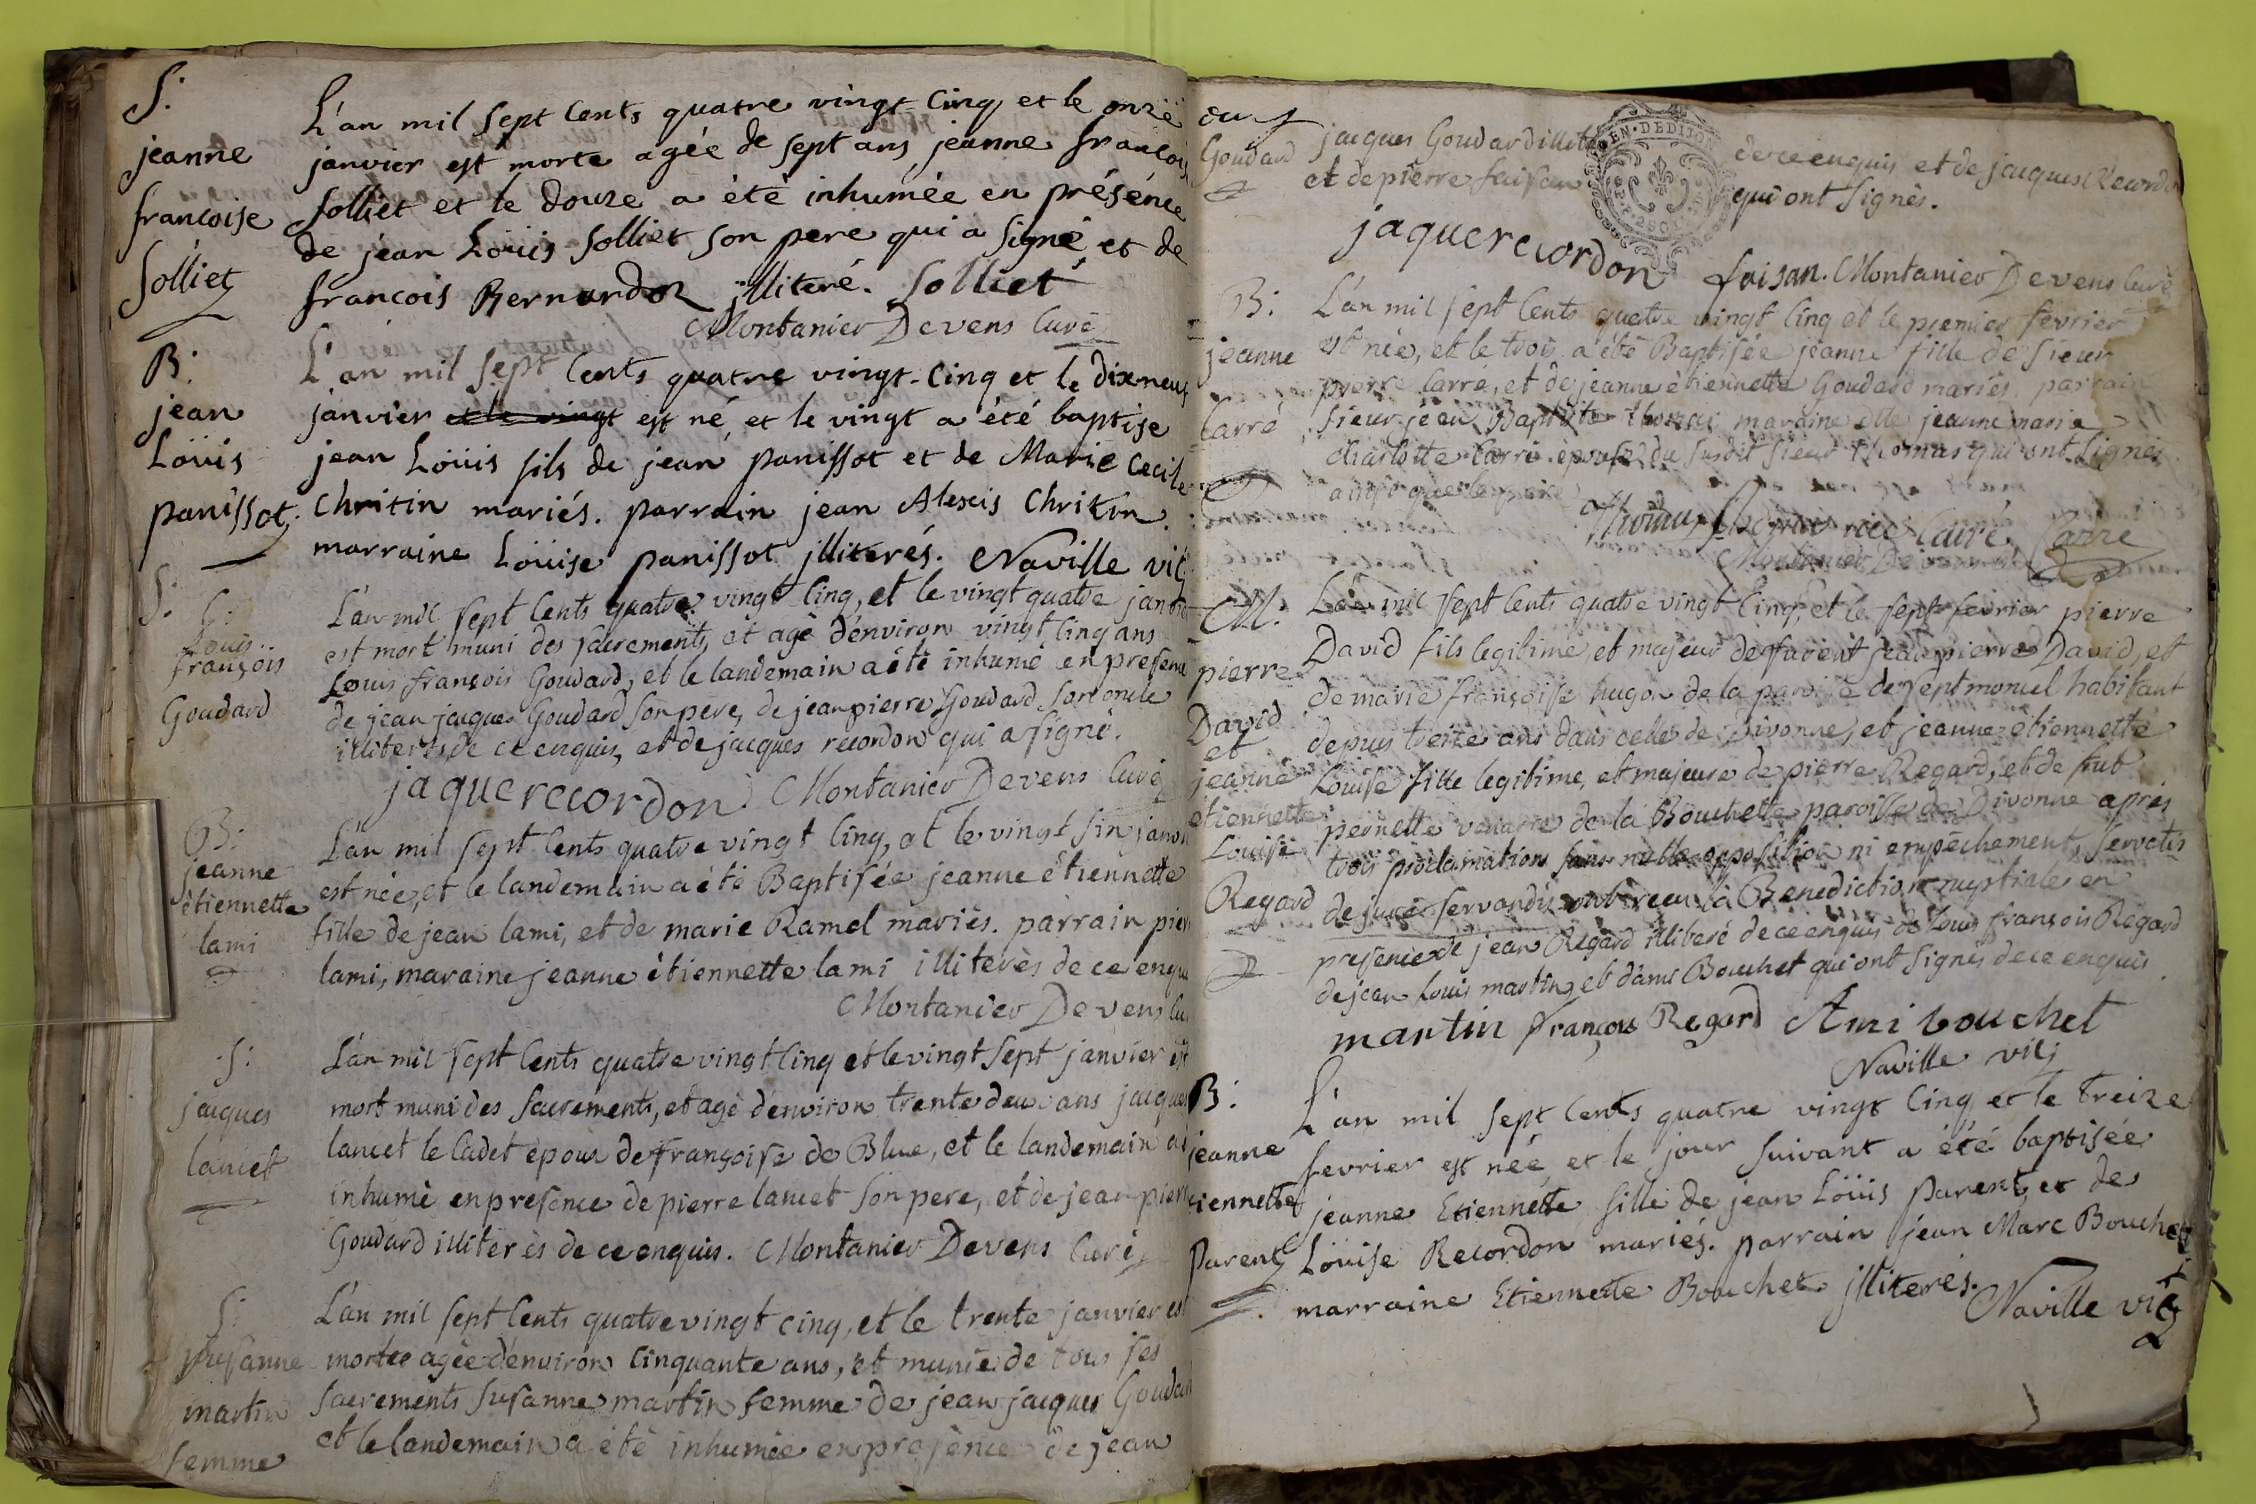 S:
jeanne
francoise
Solliet
L'an mil sept cents quatre vingt-cinq et le onze
janvier est morte agée de sept ans jeanne francoise
Solliet et le douze a été inhumée en présénce
de jean Loüis Solliet son pere qui a signé, et de
francois Bernardoz jlliteré. Solliet
Montanier Devens Curé
B:
jean
Loüis
panissot
L'an mil sept cents quatre vingt-cinq et le dixneuf
janvier et le vingt est né, et le vingt a été baptise
jean Loüis fils de jean panissot et de Marie Cecile
Christin mariés. parrain jean Alexis Christin.
marraine Loüise panissot jlliterés. Naville vic
S:
Louis
françois
Goudard
L'an mil sept cents quatre vingt cinq, et le vingt quatre janvier
est mort muni des sacrements, et agé d'environ vingt cinq ans
Louis françois Goudard, et le landemain a été inhumé en presence
de jean jacques Goudard son pere, de jean pierre Goudard son oncle
illiterés de ce enquis, et de jacques recordon qui a signé.
jaque recordon Montanier Devens Curé
B:
jeanne
étiennette
lami
L'an mil sept cents quatre vingt cinq, et le vingt six janvier
est née, et le landemain a été Baptisée jeanne étiennette
fille de jean lami, et de marie Ramel mariés. parrain pierre
lami, maraine jeanne étiennette lami illiterès de ce enquis
Montanier Devens Cu
S:
jacques
lancet
L'an mil sept cents quatre vingt cinq et le vingt sept janvier est
mort muni des sacrements, et agé d'environ trente deux ans jacques
lancet le cadet epoux de françoise de Blue, et le landemain a été
inhumé en presence de pierre lancet son pere, et de jean pierre
Goudard illiterès de ce enquis. Montanier Devens Curé
S:
susanne
martin
femme
L'an mil sept cents quatre vingt cinq, et le trente janvier est
morte agée d'environ cinquante ans, et munie de tous ses
sacrements susanne martin femme de jean jacques Goudard
et le landemain a été inhumée en presence de jean
Goudard
jacques Goudard illiteré de ce enquis et de jacques Recordon
et de pierre faisan qui ont signés.
jaque recordon faisan. Montanier Devens Curé
B:
jeanne
Carré
L'an mil sept cents quatre vingt cinq et le premier fevrier
est née, et le trois a été Baptisée jeanne fille de sieur
pierre Carré, et de jeanne étiennette Goudard mariés. parrain
sieur jean Baptiste thomas maraine dlle jeanne marie
charlotte Carré épouse du susdit sieur thomas qui ont signés
ainsi que le pere
Thomas née Carré Carre
Montanier Devens
M:
pierre
David
et
jeanne
étiennette
Louise
Regard
L'an mil sept cents quatre vingt cinq, et le sept fevrier pierre
David fils legitime, et majeur de jean pierre David, et
de marie françoise hugon de la paroisse de septmoncel habitant
depuis treize ans dans celle de Divonne, et jeanne étiennette
Louise fille legitime, et majeure de pierre Regard, et de
pernette de la Bouchette paroisse de Divonne aprés
trois proclamations sans nulle opposition ni empéchement, servatis
de jure servandis ont reçu la Benediction nuptiale en
presence de jean Regard illiteré de ce enquis de Louis françois Regard
de jean Louis martin, et d'ami Bouchet qui ont signés de ce enquis
martin françois Regard Ami bouchet
Naville vic
B:
jeanne
tiennette
Parent
L'an mil sept cents quatre vingt cinq et le treize
fevrier est née, et le jour suivant a été baptisée
jeanne Etiennette fille de jean Loüis Parent, et de
Loüise Recordon mariés. parrain jean Marc Bouchet
marraine Etiennette Bouchet jlliterés.
Naville vic